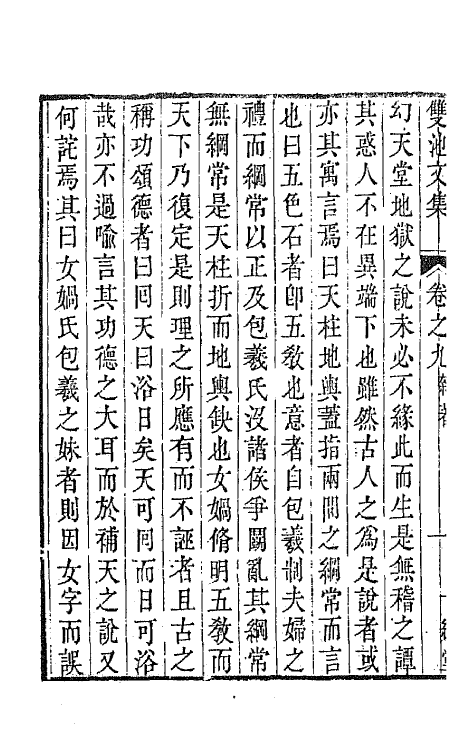 雙池文集 卷之九 雜著 一
幻天堂地獄之說未必不緣此而生是無稽之譚
其惑人不在異端下也雖然古人之爲是說者或
亦其寓言焉曰天柱地輿蓋指兩間之綱常而言
也曰五色石者卽五敎也意者自包羲制夫婦之
禮而綱常以正及包羲氏沒諸侯爭鬭亂其綱常
無綱常是天柱折而地輿缺也女媧脩明五敎而
天下乃復定是則理之所應有而不誣者且古之
稱功頌德者曰回天曰浴日矣天可囘而日可浴
哉亦不過喩言其功德之大耳而於補天之說又
何詫焉其曰女媧氏包羲之妹者則因女字而誤